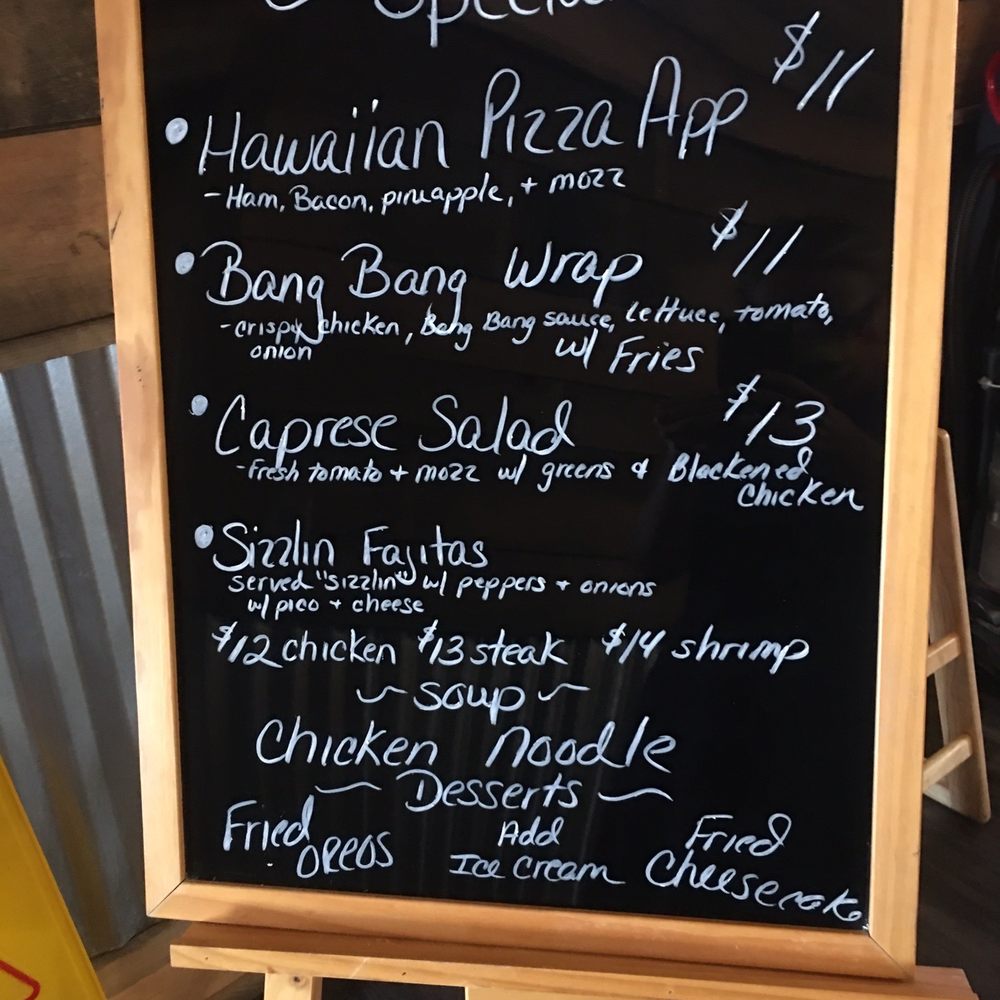 Specials
$11
• Hawaiian Pizza App
- Ham, Bacon, pineapple, + mozz
$11
• Bang Bang Wrap
- crispy chicken, Bang Bang sauce, lettuce, tomato,
onion w/ Fries
• Caprese Salad $13
- Fresh tomato + mozz w/ greens & Blackened
chicken
• Sizzlin Fajitas
served "sizzlin" w/ peppers + onions
w/ pico + cheese
$12 chicken $13 steak $14 shrimp
~ Soup ~
Chicken Noodle
~ Desserts ~
Fried Oreos
Add Ice Cream
Fried Cheesecake